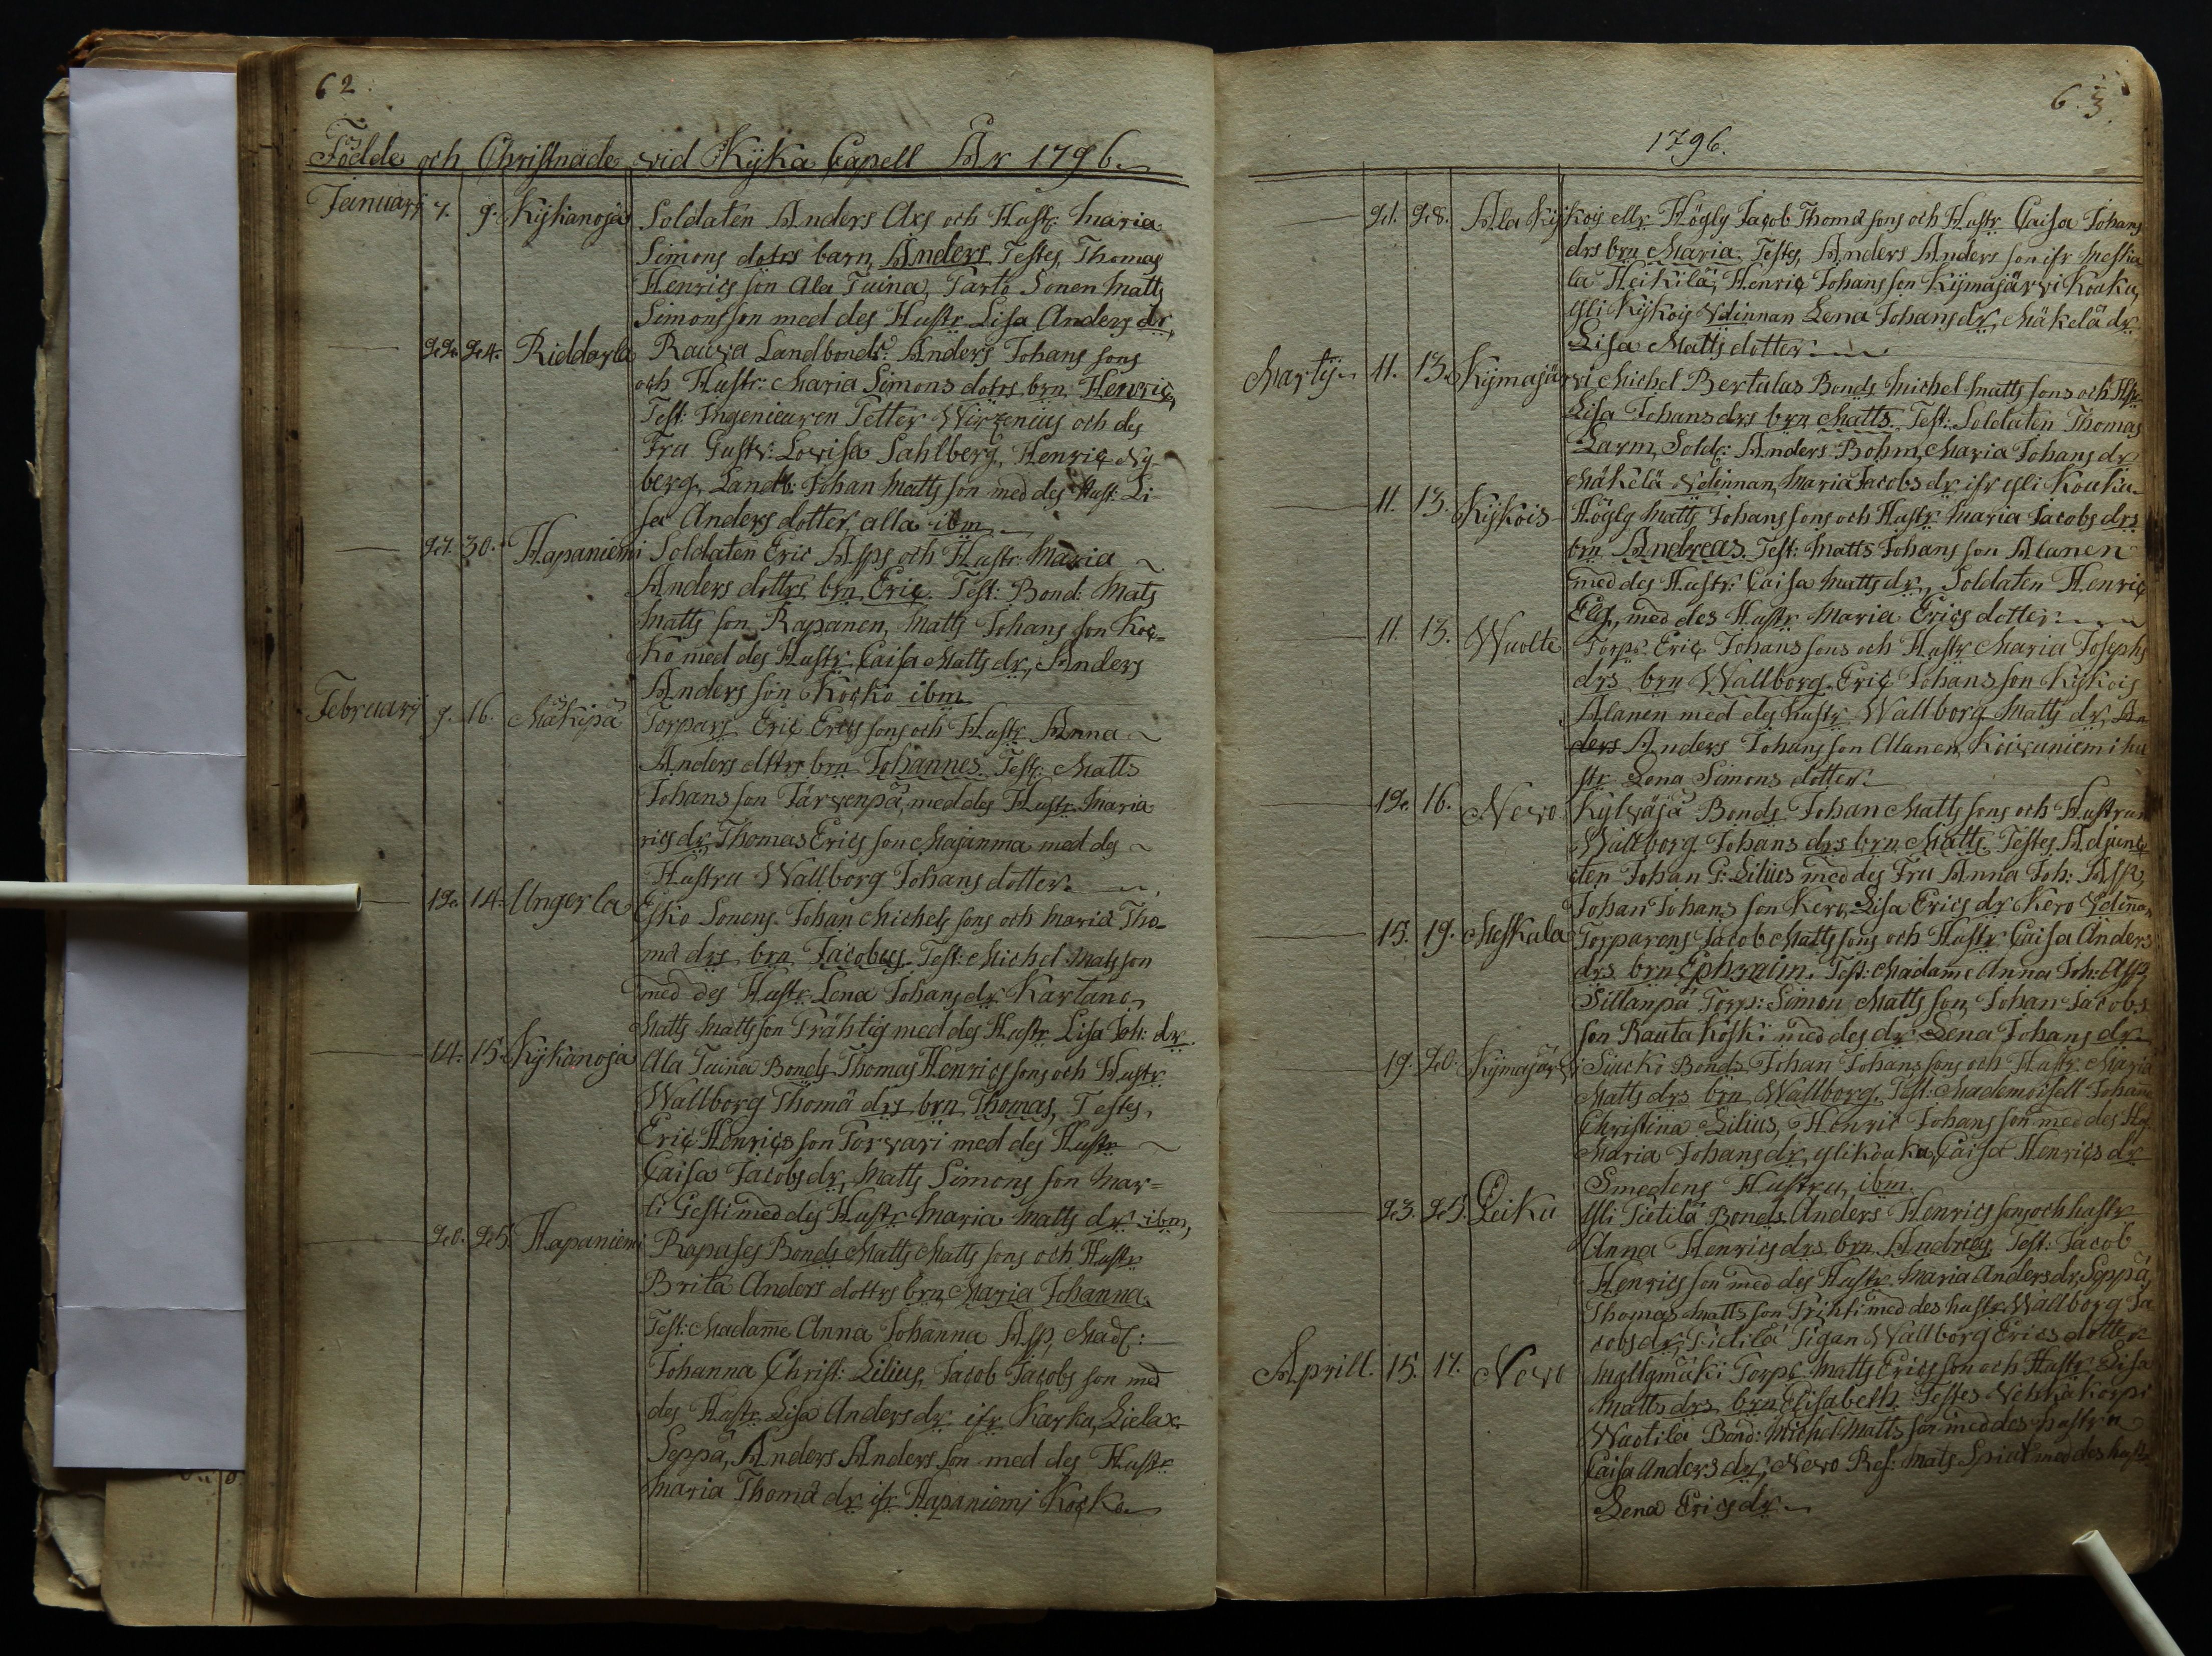 62.
Födde och Christnade vid Kyka Capell År 1796.
January 7. 9. Kijkanoja Soldaten Anders Axs och Hustr. Maria
Simons dotrs barn, Anders Testes, Thomas
Henrics son Ala Tuina, Tarto Sonen Matts
Simons son med des Hustr Lisa Anders dr,
22. 24. Riddarla Rauva Landbonds: Anders Johans sons
och Hustr: Maria Simons dotrs brn Henric,
Test: Ingenieuren Petter Wirzenius och des
Fru Gustv: Lovisa Sahlberg, Henric Ny-
berg, Landb: Johan Matts son med des Hust: Li-
sa Anders dotter, alla ibm
27. 30. Hapaniemi Soldaten Eric Asps och Hustr. Maria
Anders dottrs brn Eric. Test: Bond: Mats
Matts son Rapanen, Matts Johans son Koc=
ko med des Hustr. Caisa Matts dr, Anders
Anders son Kocko ibm
February 9. 16. Mäkipä Torpars Eric Erics sons och Hustr Anna
Anders dttrs brn Johannes. Test: Matts
Johans son Järvenpä, med des Hustr Maria
rics dr, Thomas Erics son Majanma med des
Hustru Wallborg Johans dotter.
12. 14. Ungerla Esko Sonens Johan Michels sons och Maria Tho-
mä drs brn Jacobus. Test: Michel Mats son
med des Hustr Lena Johans dr Kartano,
Matts Matts son Prähtig med des Hustr Lisa Joh: dr.
14. 15. Kijkanoja Ala Tuina Bonds Thomas Henrics sons och Hustr
Wallborg Thomä drs brn Thomas, Testes,
Eric Henrics son Torvari med des Hustr
Caisa Jacobs dr, Matts Simons son Mar=
ti Gesti med des Hustr Maria Matts dr ibm,
20. 25. Hapaniemi Rapases Bonds Matts Matts sons och Hustr
Brita Anders dottrs brn Maria Johanna.
Test: Madame Anna Johanna Asp, Mad:
Johanna Christ: Lilius, Jacob Jacobs son med
des Hustr Lisa Anders dr ifr Karku, Lielax
Seppä, Anders Anders son med des Hustr
Maria Thomä dr ifr Hapaniemi Kocko
63.
1796.
21. 28. Ala Kijkois ellr Högly Jacob Thomä sons och Hustr Caisa Johans
drs brn Maria. Testes, Anders Anders son ifr Meska
la Heikilä, Henric Johans son Kijmajärvi Kouku,
Yli Kijkois Vdinnan Lena Johans dr, Mäkelä dr
Lisa Matts dotter
Martij 11. 13. Kijmajärvi Michel Bertulas Bonds Michel Matts sons och Hstr
Lisa Johans drs brn Matts. Test: Soldaten Thomas
Larm, Sold: Anders Bohm, Maria Johans dr
Mäkelä Vdinnan, Maria Jacobs dr ifr Yli Kouku
11. 13. Kijkois Högly Matts Johans sons och Hustr Maria Jacobs drs
brn Andreas. Test: Matts Johans son Alanen
med des Hustr: Caisa Matts dr, Soldaten Henric
Elg, med des Hustr Maria Erics dotter
11. 13. Wuolte Torps: Eric Johans sons och Hustr Maria Josephs
drs brn Wallborg. Eric Johans son Kijkois
Alanen med des hustr Wallborg Matts dr, An
ders Anders Johans son Alanen, Koivuniemi hu
str Lena Simons dotter.
12. 16. Nevo Kylväjä Bonds Johan Matts sons och Hustrun
Wallborg Johans drs brn Matts. Testes Adjunc
ten Johan G: Lilius med des Fru Anna Joh: Asp,
Johan Johans son Kero, Lisa Erics dr Kero Vdinnan
15. 19. Meskala Torparens Jacob Matts sons och Hustr Caisa Anders
drs brn Ephraim. Test: Madame Anna Joh: Asp,
Sillanpä Torp: Simon Matts son, Johan Jacobs
son Rautakoski med des dr Lena Johans dr
19. 20. Kijmajärvi Suicko Bonds Johan Johans sons och Hustr Maria
Matts drs brn Wallborg. Test: Mademoisell Johanna
Christina Lilius, Henric Johans son med des Hst
Maria Johans dr, Ylikouku, Caisa Henrics dr
Smedens Hustru, ibm.
23. 25. Leiku Yli Pietilä Bonds Anders Henrics sons och hustr
Anna Henrics drs brn Andreas. Test: Jacob
Henrics son med des Hustr Maria Anders dr, Seppä,
Thomas Matts son Prihti med des hustr Wallborg Ja
cobs dr, Pietilä Pigan Wallborg Erics dotter
Aprill. 15. 17. Nevo Torps: Matts Erics son och Hustr Lisa
Matts drs brn Elisabeth. Testes Vehkäkorpi
Wuotila Bond: Michel Matts son med des hustru
Caisa Anders dr, Nevo Res: Mats med des hustr
Lena Erics dr